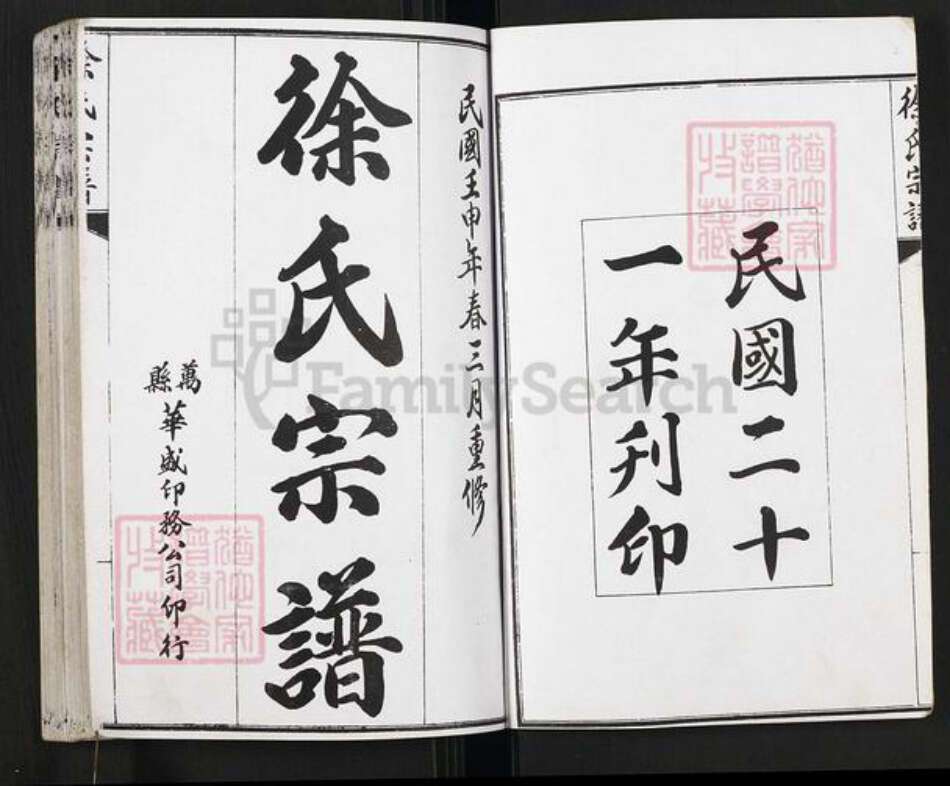 徐氏宗譜
民國二十
一年刊印
民國壬申年春三月重修
徐氏宗譜
萬縣華盛印務公司印行
徐氏宗譜
猶他家
譜學會
收藏
猶他家
譜學會
收藏
FamilySearch